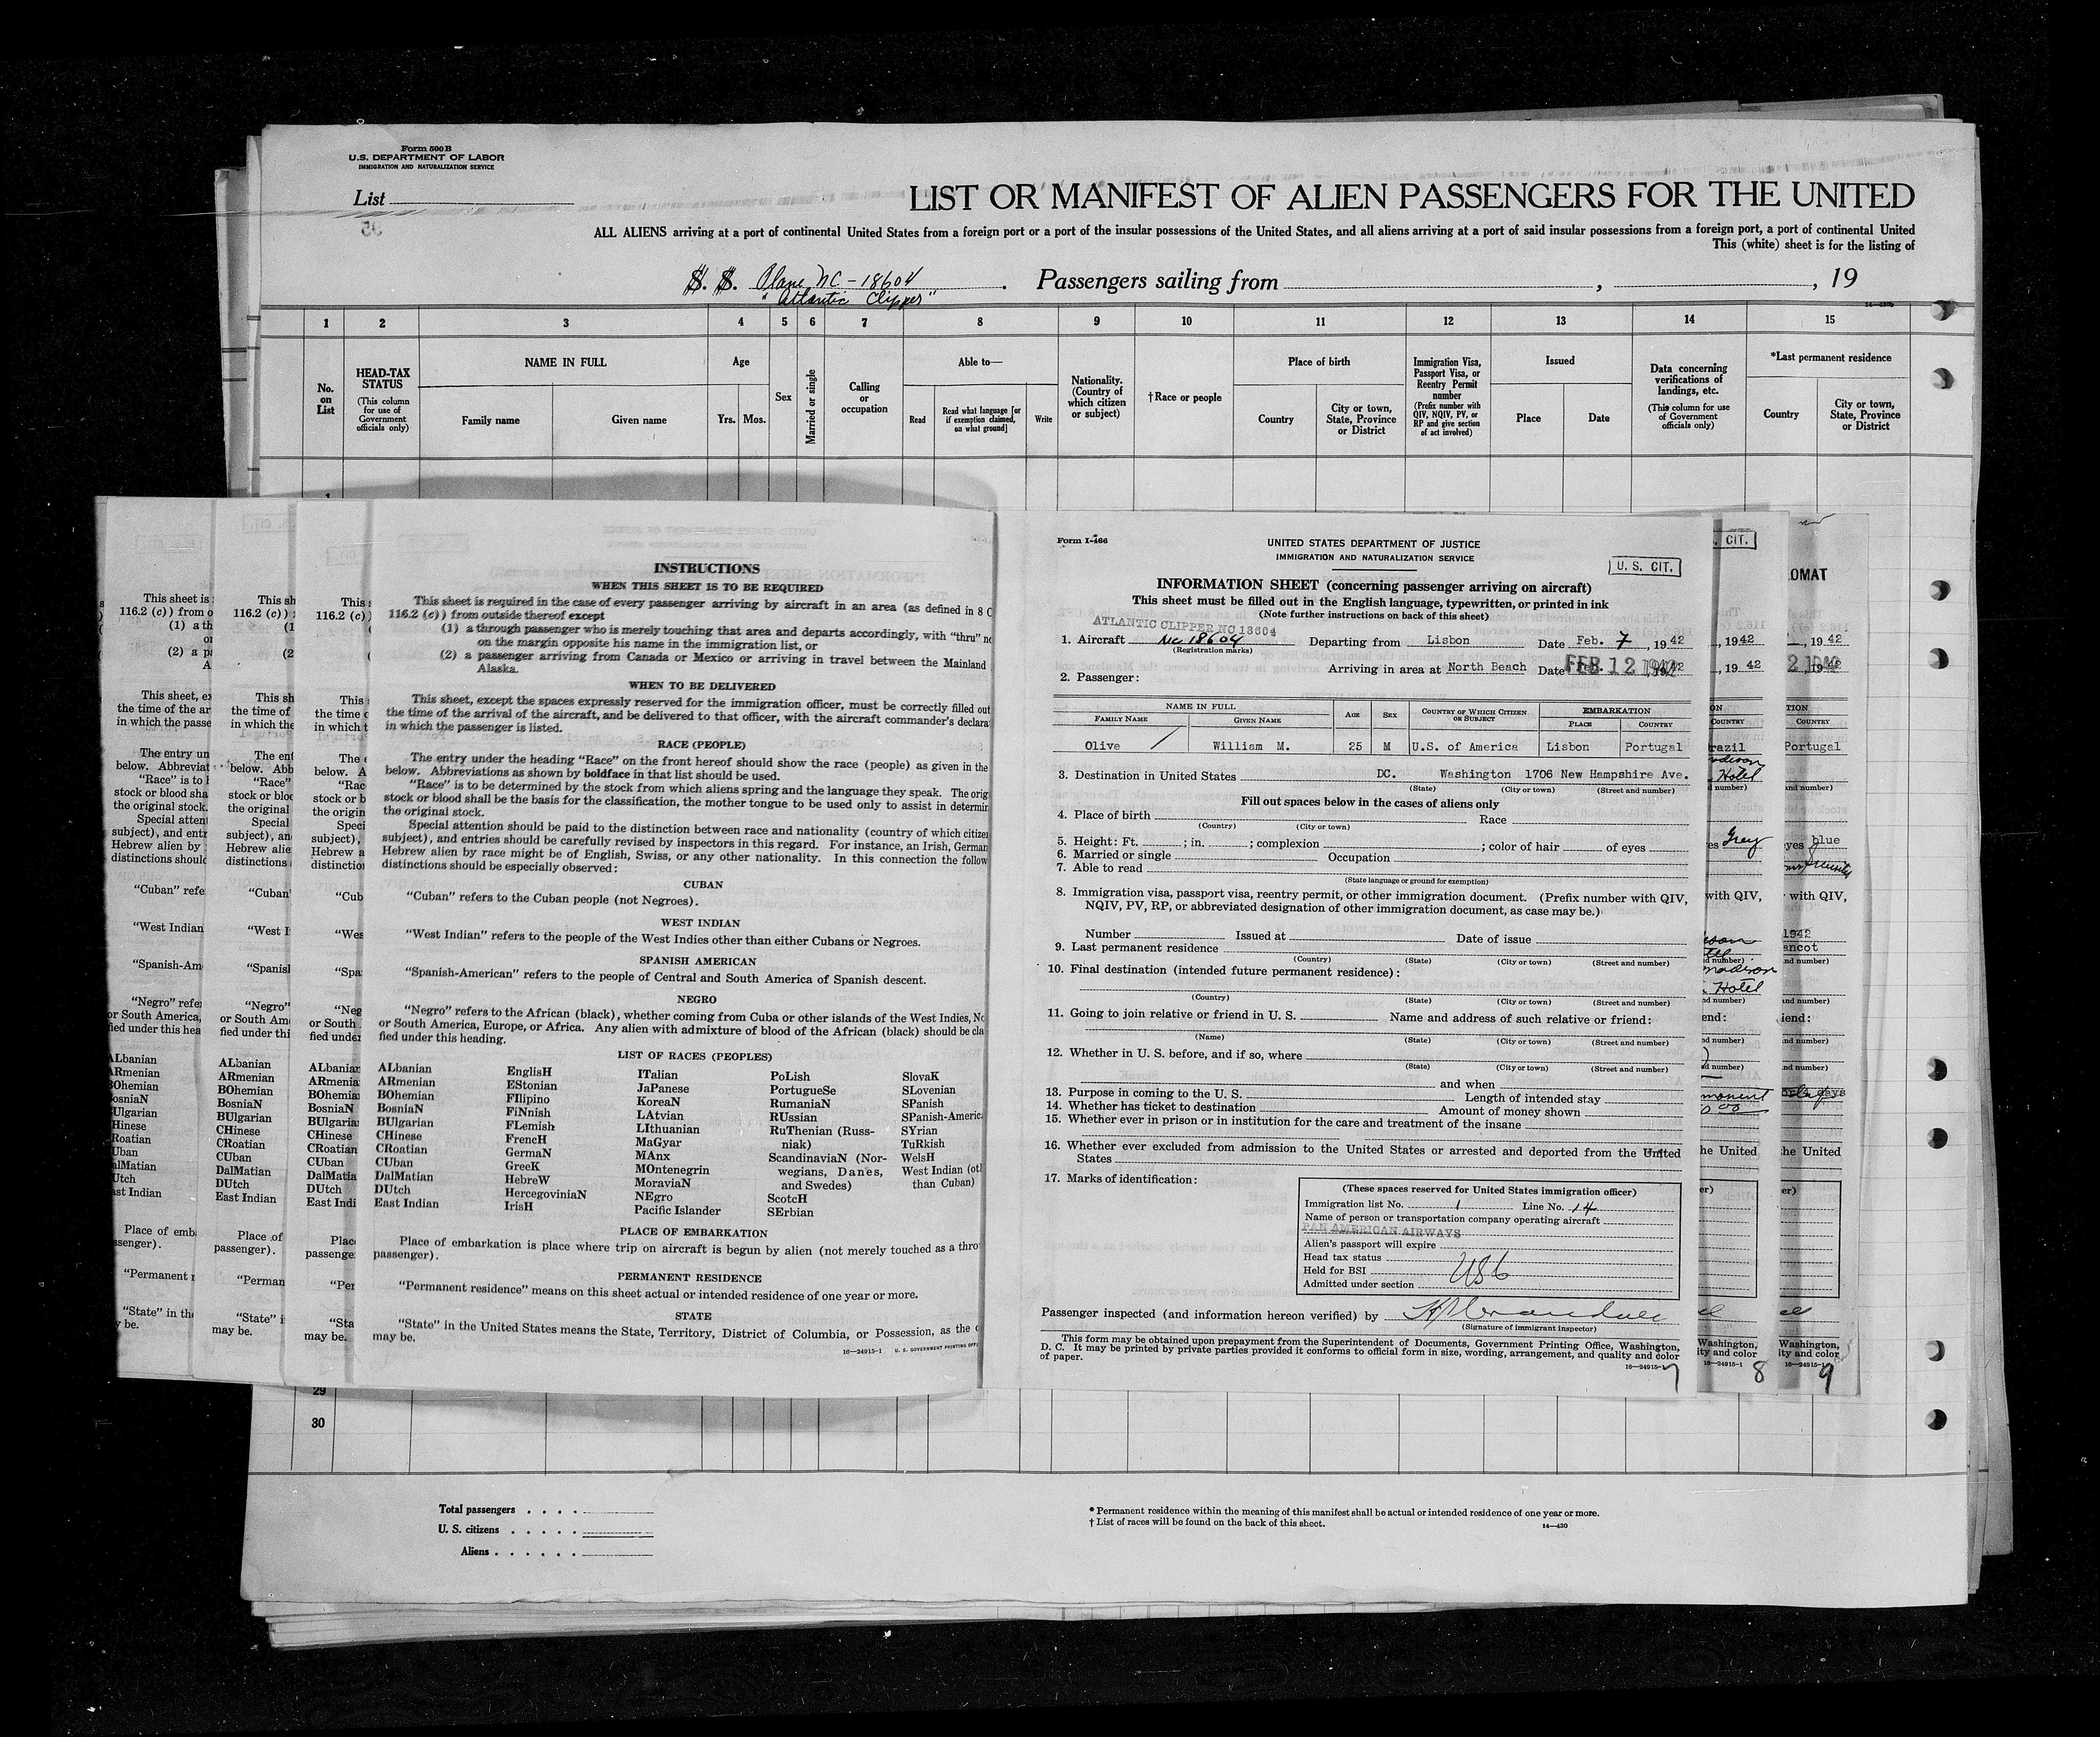 Form 500B
U.S. DEPARTMENT OF LABOR
IMMIGRATION AND NATURALIZATION SERVICE
List
LIST OR MANIFEST OF ALIEN PASSENGERS FOR THE UNITED
ALL ALIENS arriving at a port of continental United States from a foreign port or a port of the insular possessions of the United States, and all aliens arriving at a port of said insular possessions from a foreign port, a port of continental United
This (white) sheet is for the listing of
S. S. Plane NC-18604
"Atlantic Clipper"
Passengers sailing from , , 19
1 2 3 4 5 6 7 8 9 10 11 12 13 14 15
No. on List
HEAD-TAX STATUS (This column for use of Government officials only)
NAME IN FULL
Family name Given name
Age
Yrs. Mos.
Sex
Married or single
Calling or occupation
Able to—
Read
Read what language [or if exemption claimed, on what ground]
Write
Nationality. (Country of which citizen or subject)
†Race or people
Place of birth
Country
City or town, State, Province or District
Immigration Visa, Passport Visa, or Reentry Permit number (Prefix number with QIV, NQIV, PV, or RP and give section of act involved)
Issued
Place Date
Data concerning verifications of landings, etc. (This column for use of Government officials only)
*Last permanent residence
Country
City or town, State, Province or District
INSTRUCTIONS
WHEN THIS SHEET IS TO BE REQUIRED
This sheet is required in the case of every passenger arriving by aircraft in an area (as defined in 8 C
116.2 (c)) from outside thereof except
(1) a through passenger who is merely touching that area and departs accordingly, with "thru" no
on the margin opposite his name in the immigration list, or
(2) a passenger arriving from Canada or Mexico or arriving in travel between the Mainland
Alaska.
WHEN TO BE DELIVERED
This sheet, except the spaces expressly reserved for the immigration officer, must be correctly filled out
the time of the arrival of the aircraft, and be delivered to that officer, with the aircraft commander's declara
in which the passenger is listed.
RACE (PEOPLE)
The entry under the heading "Race" on the front hereof should show the race (people) as given in the
below. Abbreviations as shown by boldface in that list should be used.
"Race" is to be determined by the stock from which aliens spring and the language they speak. The orig
stock or blood shall be the basis for the classification, the mother tongue to be used only to assist in determin
the original stock.
Special attention should be paid to the distinction between race and nationality (country of which citizen
subject), and entries should be carefully revised by inspectors in this regard. For instance, an Irish, German
Hebrew alien by race might be of English, Swiss, or any other nationality. In this connection the follow
distinctions should be especially observed:
CUBAN
"Cuban" refers to the Cuban people (not Negroes).
WEST INDIAN
"West Indian" refers to the people of the West Indies other than either Cubans or Negroes.
SPANISH AMERICAN
"Spanish-American" refers to the people of Central and South America of Spanish descent.
NEGRO
"Negro" refers to the African (black), whether coming from Cuba or other islands of the West Indies, No
or South America, Europe, or Africa. Any alien with admixture of blood of the African (black) should be cla
fied under this heading.
LIST OF RACES (PEOPLES)
ALbanian
ARmenian
BOhemian
BosniaN
BUlgarian
CHinese
CRoatian
CUban
DalMatian
DUtch
East Indian
EnglisH
EStonian
FIlipino
FiNnish
FLemish
FrencH
GermaN
GreeK
HebreW
HercegoviniaN
IrisH
ITalian
JaPanese
KoreaN
LAtvian
LIthuanian
MaGyar
MAnx
MOntenegrin
MoraviaN
NEgro
Pacific Islander
PoLish
PortugueSe
RumaniaN
RUssian
RuThenian (Russniak)
ScandinaviaN (Norwegians, Danes, and Swedes)
ScotcH
SErbian
SlovaK
SLovenian
SPanish
SPanish-Americ
SYrian
TuRkish
WelsH
West Indian (oth
than Cuban)
PLACE OF EMBARKATION
Place of embarkation is place where trip on aircraft is begun by alien (not merely touched as a thro
passenger).
PERMANENT RESIDENCE
"Permanent residence" means on this sheet actual or intended residence of one year or more.
STATE
"State" in the United States means the State, Territory, District of Columbia, or Possession, as the c
may be.
16—24915-1 U. S. GOVERNMENT PRINTING OFF
Form I-466
UNITED STATES DEPARTMENT OF JUSTICE
IMMIGRATION AND NATURALIZATION SERVICE
U. S. CIT.
INFORMATION SHEET (concerning passenger arriving on aircraft)
This sheet must be filled out in the English language, typewritten, or printed in ink
(Note further instructions on back of this sheet)
ATLANTIC CLIPPER NC 18604
1. Aircraft NC 18604 Departing from Lisbon Date Feb. 7, 1942
(Registration marks)
Arriving in area at North Beach Date FEB 12 1942
2. Passenger:
NAME IN FULL
FAMILY NAME GIVEN NAME AGE SEX COUNTRY OF WHICH CITIZEN OR SUBJECT EMBARKATION PLACE COUNTRY
Olive / William M. 25 M U.S. of America Lisbon Portugal
3. Destination in United States DC. Washington 1706 New Hampshire Ave.
(State) (City or town) (Street and number)
Fill out spaces below in the cases of aliens only
4. Place of birth Race
(Country) (City or town)
5. Height: Ft. ; in. ; complexion ; color of hair of eyes
6. Married or single Occupation
7. Able to read
(State language or ground for exemption)
8. Immigration visa, passport visa, reentry permit, or other immigration document. (Prefix number with QIV,
NQIV, PV, RP, or abbreviated designation of other immigration document, as case may be.)
Number Issued at Date of issue
9. Last permanent residence
(Country) (State) (City or town) (Street and number)
10. Final destination (intended future permanent residence):
(Country) (State) (City or town) (Street and number)
11. Going to join relative or friend in U. S. Name and address of such relative or friend:
(Name) (State) (City or town) (Street and number)
12. Whether in U. S. before, and if so, where
(State) (City or town) (Street and number)
and when
13. Purpose in coming to the U. S. Length of intended stay
14. Whether has ticket to destination Amount of money shown
15. Whether ever in prison or in institution for the care and treatment of the insane
16. Whether ever excluded from admission to the United States or arrested and deported from the United
States
17. Marks of identification:
(These spaces reserved for United States immigration officer)
Immigration list No. 1 Line No. 14
Name of person or transportation company operating aircraft
PAN AMERICAN AIRWAYS
Alien's passport will expire
Head tax status
Held for BSI
Admitted under section
Passenger inspected (and information hereon verified) by
(Signature of immigrant inspector)
This form may be obtained upon prepayment from the Superintendent of Documents, Government Printing Office, Washington,
D. C. It may be printed by private parties provided it conforms to official form in size, wording, arrangement, and quality and color
of paper.
16—24915-1
7
8
9
29
30
Total passengers . . . .
U. S. citizens . . . . .
Aliens . . . . . .
* Permanent residence within the meaning of this manifest shall be actual or intended residence of one year or more.
† List of races will be found on the back of this sheet.
14—430